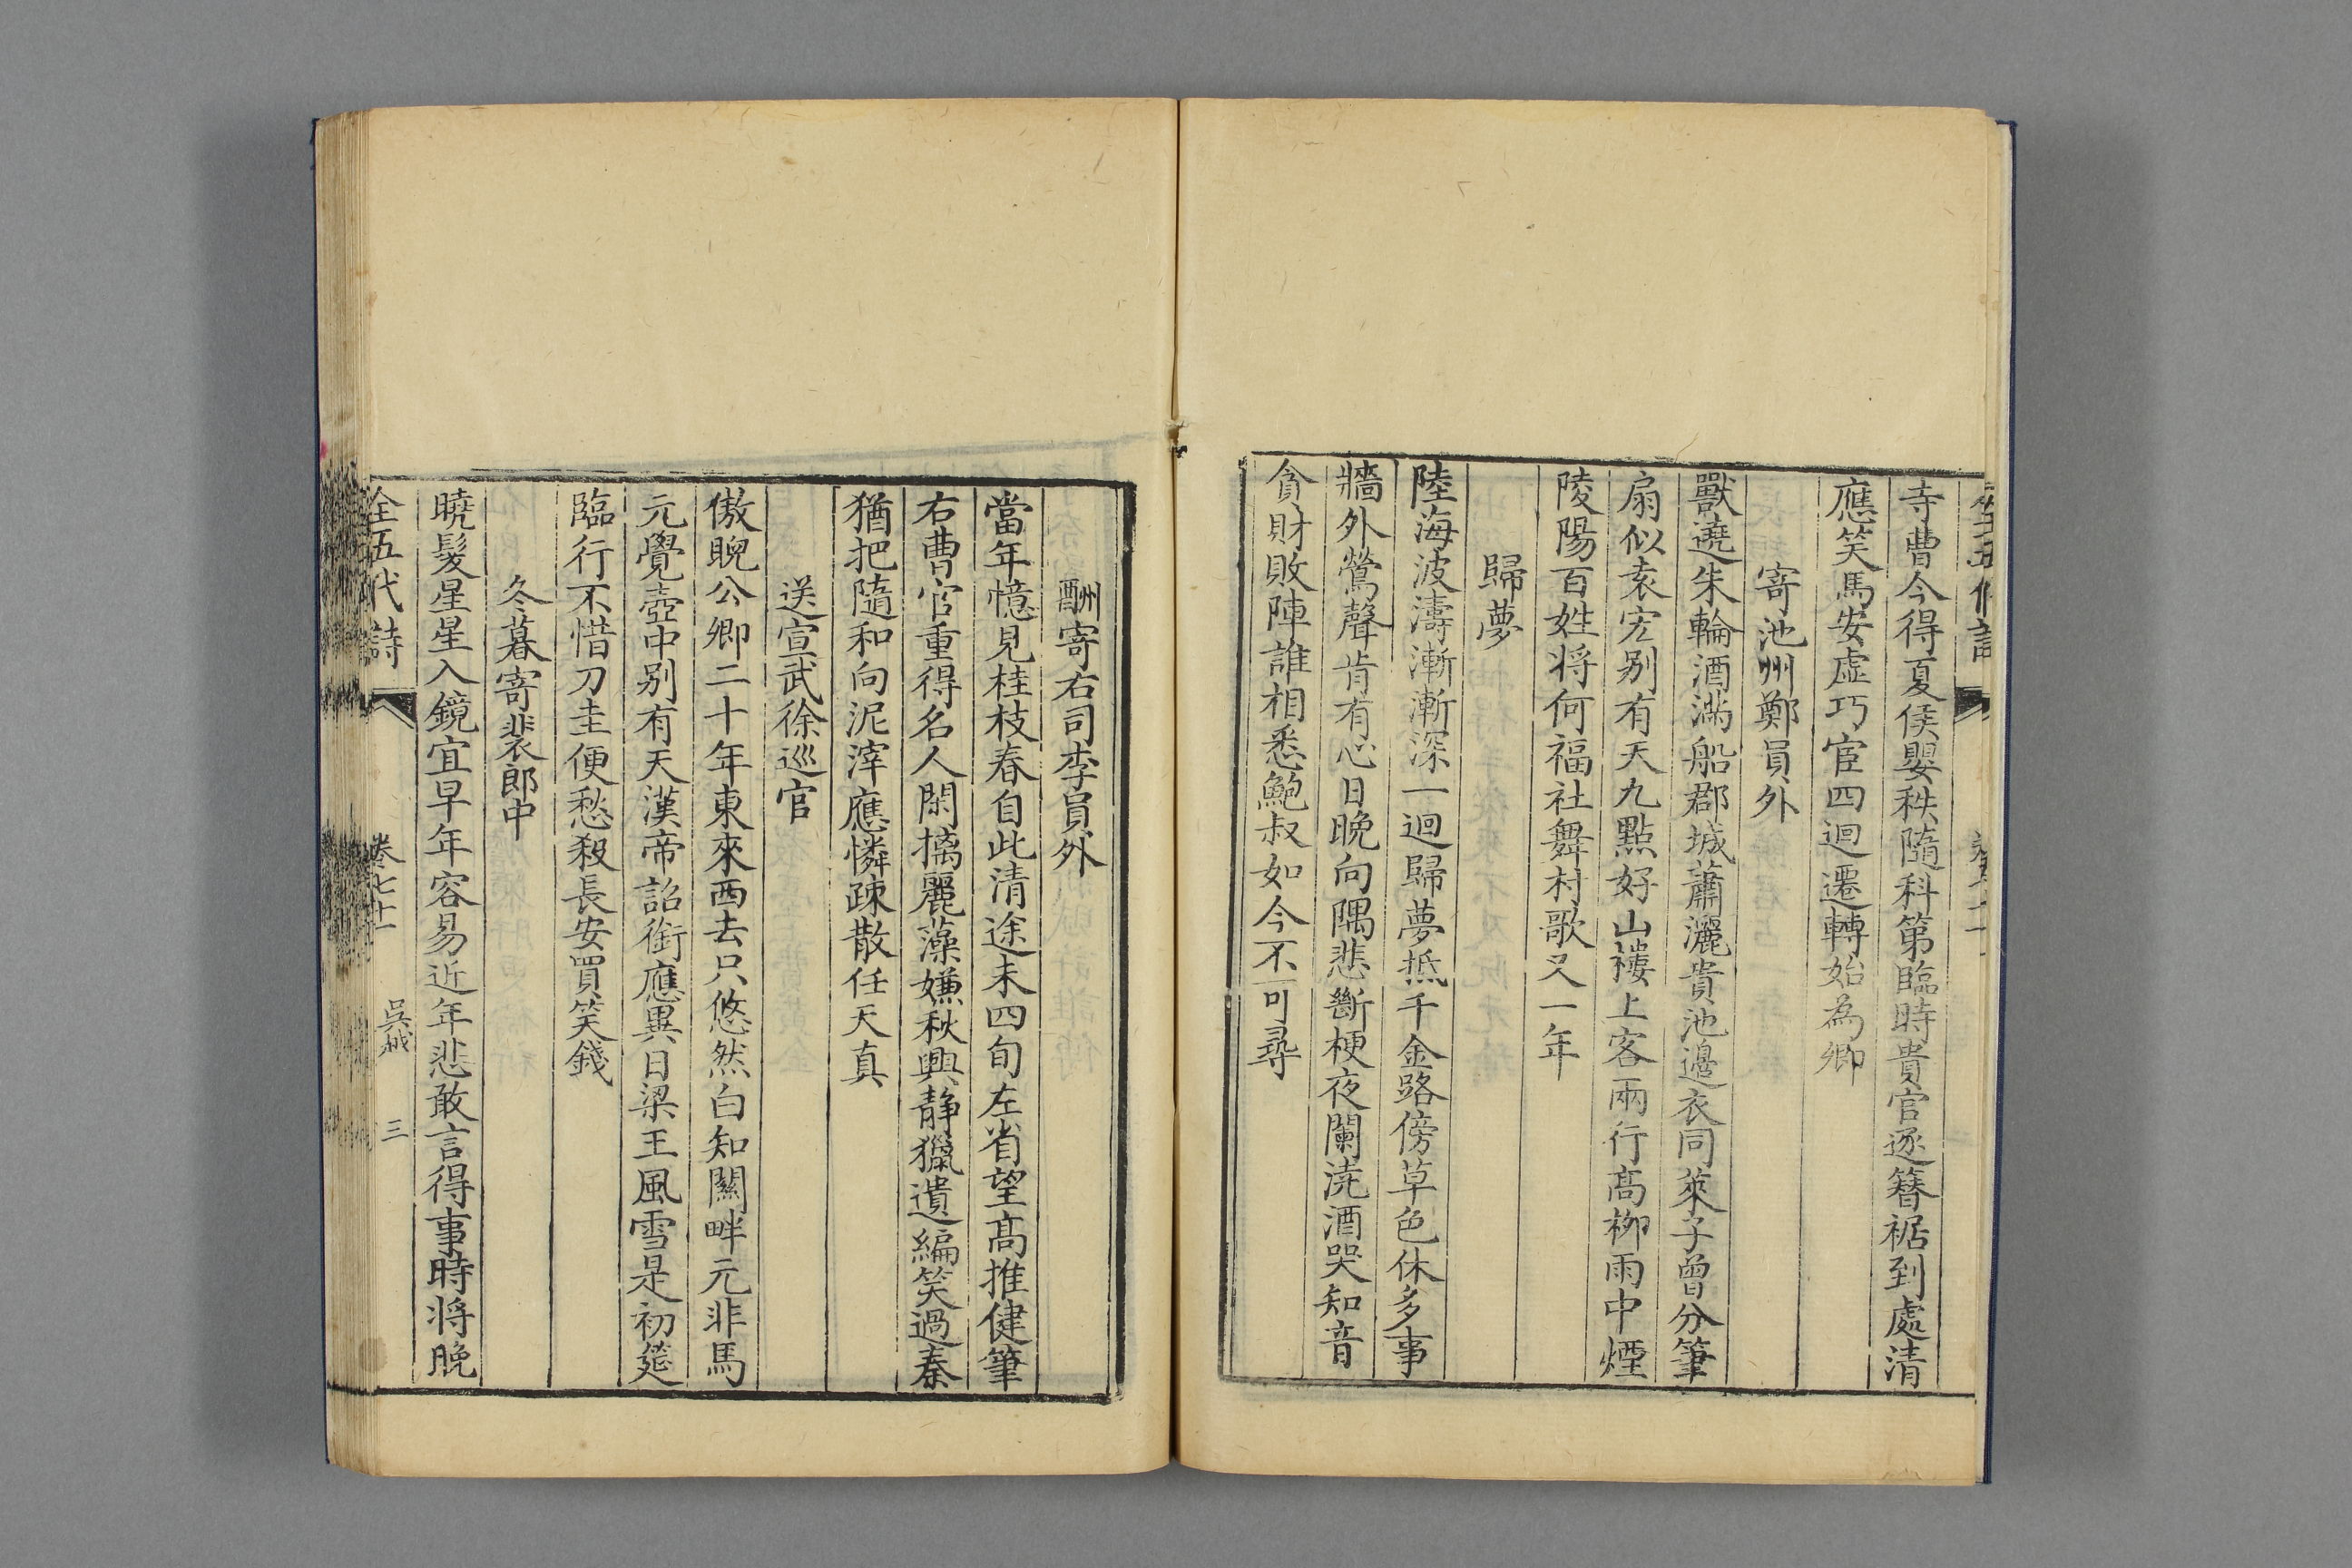 寺曹今得夏侯嬰秩隨科第臨時貴官逐簪裾到處清
應笑馬安虛巧宦四迴遷轉始為卿
寄池州鄭員外
獸遶朱輪酒滿船郡城蕭灑貴池邊衣同萊子曾分筆
扇似袁宏别有天九點好山樓上客兩行高栁雨中煙
陵陽百姓将何福社舞村歌又一年
歸夢
陸海波濤漸漸深一迴歸夢抵千金路傍草色休多事
牆外鶯聲肯有心日晚向隅悲斷梗夜闌澆酒哭知音
貪財敗陣誰相悉鮑叔如今不可尋
酬寄右司李員外
當年憶見桂枝春自此清途未四旬左省望高推健筆
右曹官重得名人閑摛麗藻嫌秋興静獵遺編笑過秦
猶把隨和向泥滓應憐疎散任天真
送宣武徐巡官
傲睨公卿二十年東來西去只悠然白知關畔元非馬
元覺壺中别有天漢帝詔銜應異日梁王風雪是初筵
臨行不惜刀圭便愁殺長安買笑錢
冬暮寄裴郎中
曉髮星星入鏡宜早年容易近年悲敢言得事時将晚
全五代詩 卷七十一 吳 三